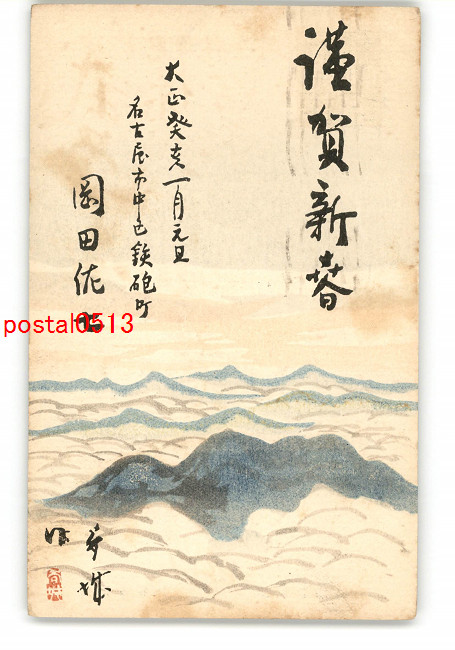 謹賀新春
大正癸亥一月元旦
名古屋市中区鉄砲町
岡田佐
postal0513
作